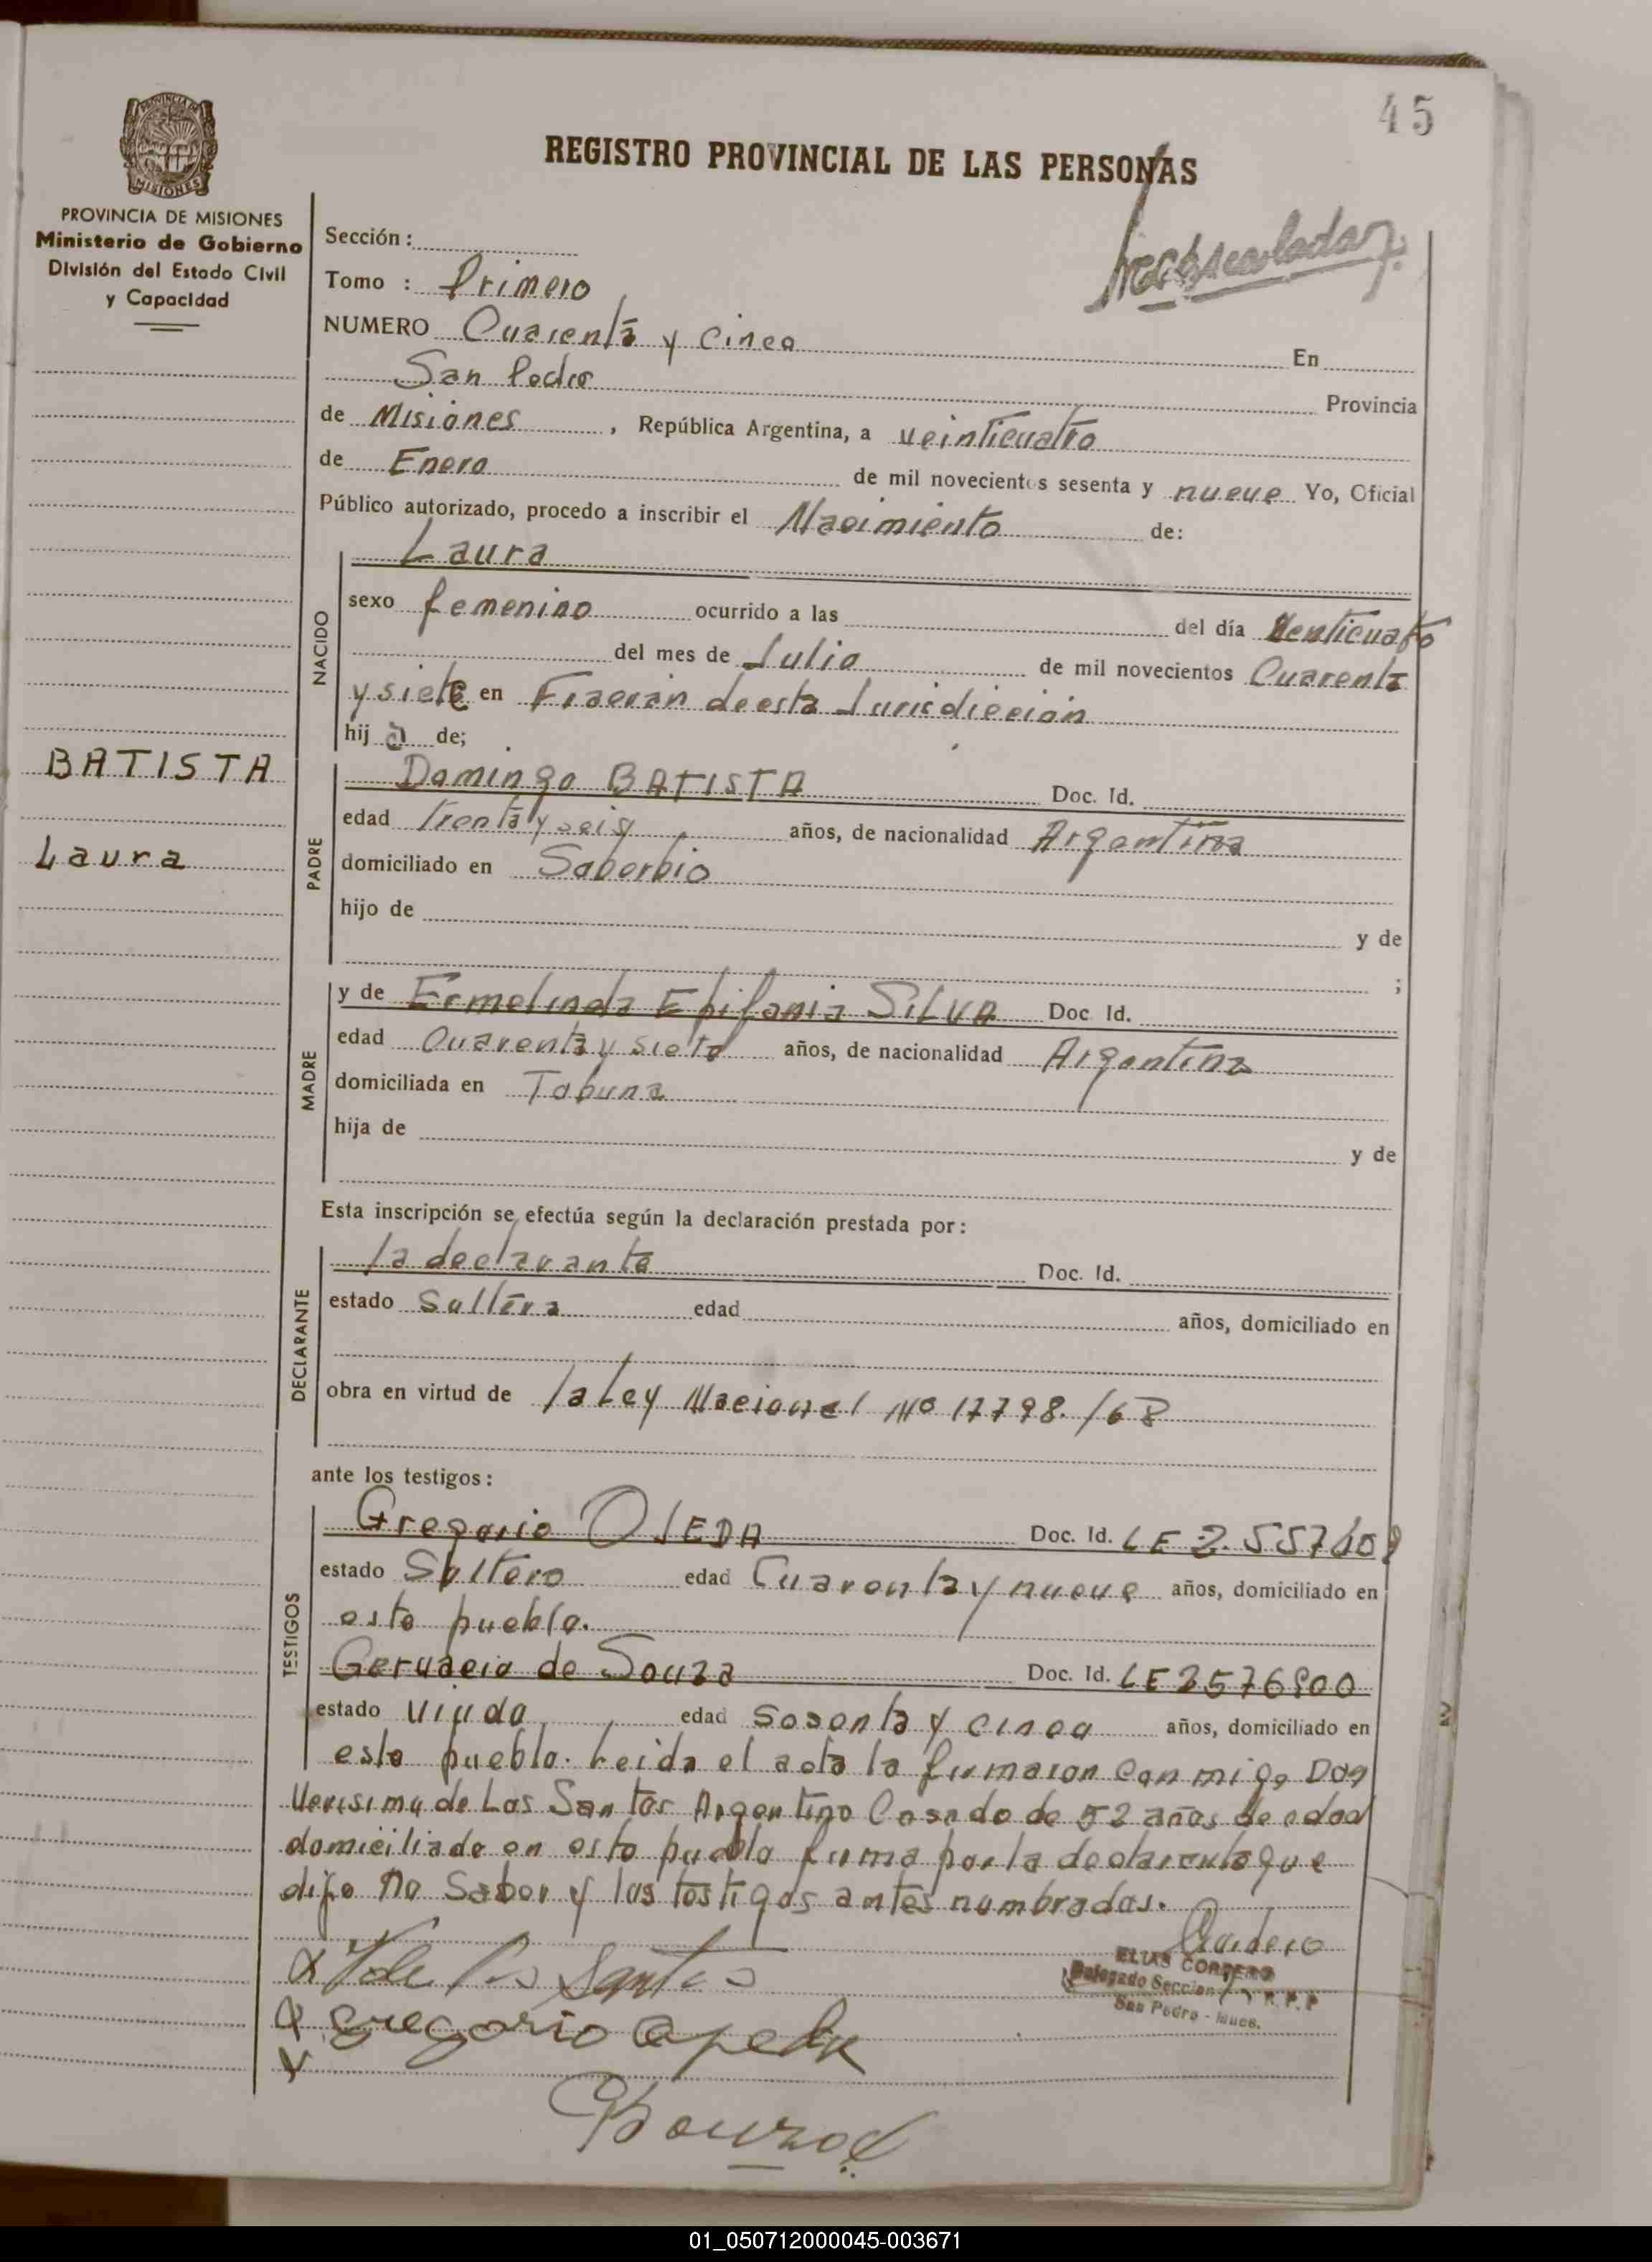 45
REGISTRO PROVINCIAL DE LAS PERSONAS
PROVINCIA DE MISIONES
Ministerio de Gobierno
División del Estado Civil
y Capacidad
Sección:
Tomo : Primero
NUMERO Cuarenta y Cinco En
San Pedro Provincia
de Misiones , República Argentina, a veinticuatro
de Enero de mil novecientos sesenta y nueve Yo, Oficial
Público autorizado, procedo a inscribir el Nacimiento de:
Laura
NACIDO
sexo femenino ocurrido a las del día Venticuatro
del mes de Julio de mil novecientos Cuarenta
y siete en Fracrán de esta Jurisdiccion
hij a de;
BATISTA
Laura
PADRE
Domingo BATISTA Doc. Id.
edad Trenta y seis años, de nacionalidad Argentina
domiciliado en Saberbio
hijo de y de
;
MADRE
y de Ermelinda Epifania SILVA Doc Id.
edad Cuarenta y siete años, de nacionalidad Argentina
domiciliada en Tobuna
hija de y de
Esta inscripción se efectúa según la declaración prestada por:
DECLARANTE
la declarante Doc. Id.
estado Soltera edad años, domiciliado en
obra en virtud de la Ley Nacional Nº 17798./68
ante los testigos:
TESTIGOS
Gregorio OJEDA Doc. Id. LE 2.557609
estado Soltero edad Cuarenta y nueve años, domiciliado en
este pueblo.
Gervacio de Souza Doc. Id. LE 2576900
estado viudo edad Sesenta y cinco años, domiciliado en
este pueblo. Leida el acta la firmaron conmigo Don
Verisimo de Los Santos Argentino Casado de 52 años de edad
domiciliado en este pueblo firma por la declarante que
dijo no Saber y los testigos antes nombrados.
V de los Santos
Cordero
ELIAS CORDERO
Delegado Seccion R. P. P
San Pedro - Mnes.
Gregorio Ojeda
GSouza
01_050712000045-003671